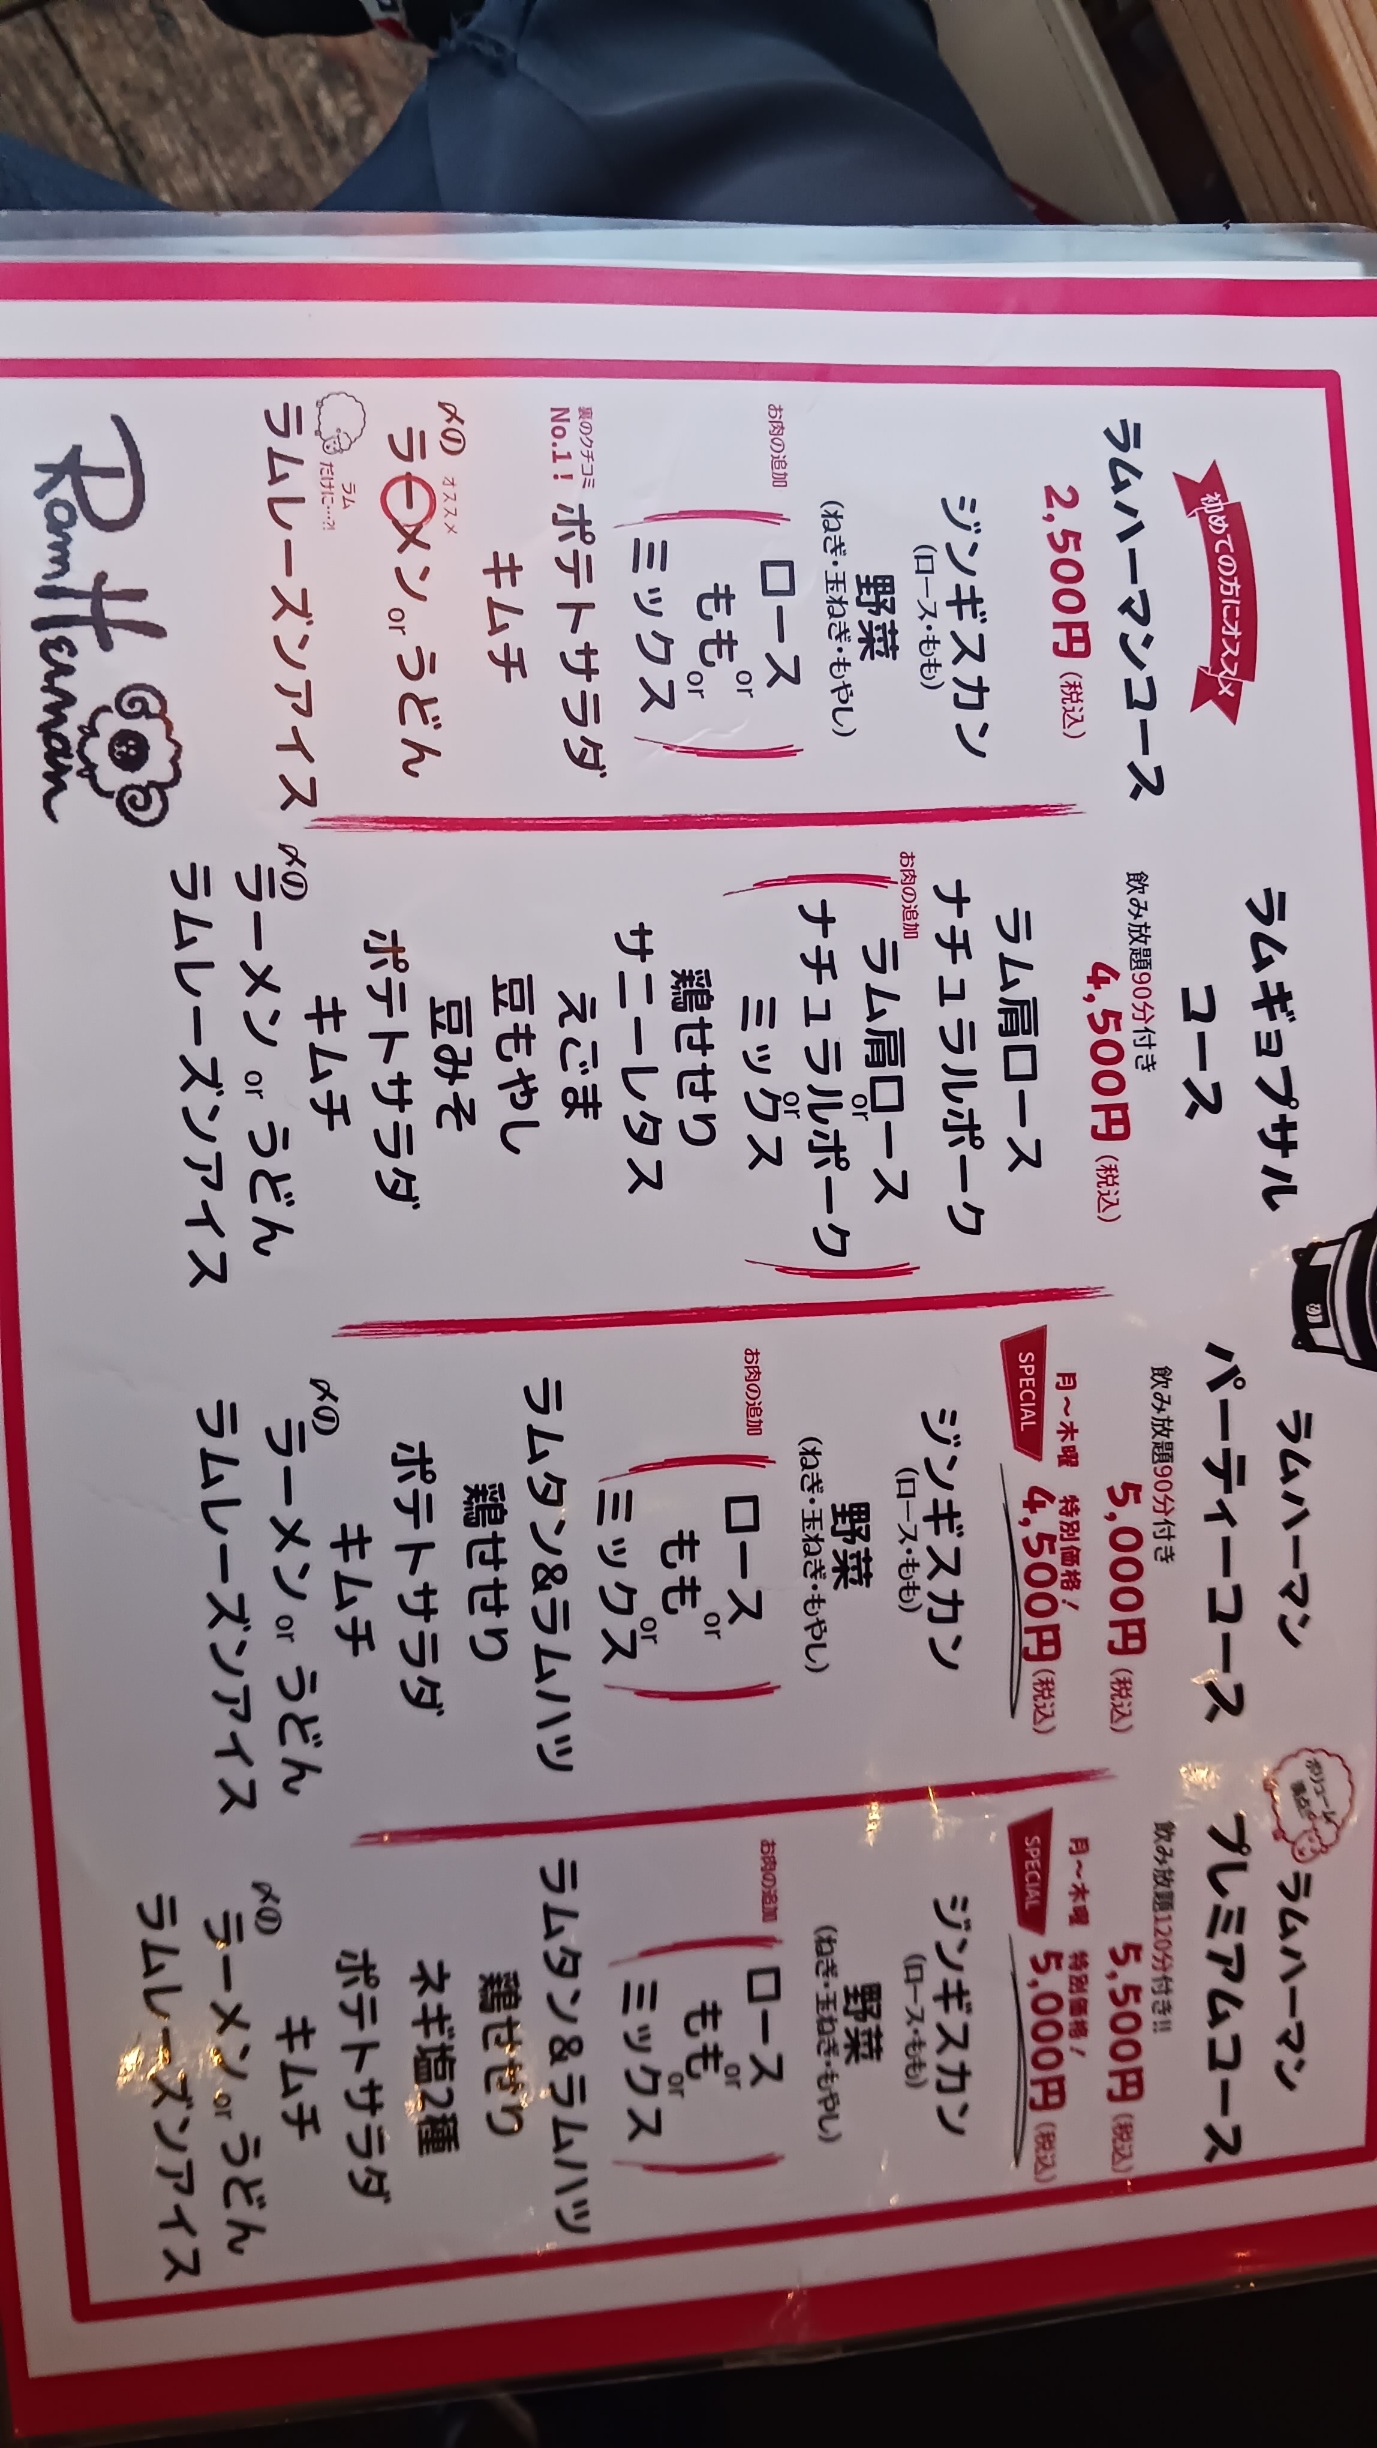 初めての方にオススメ
ラムハーマンコース
2,500円(税込)
ジンギスカン
(ロース・もも)
野菜
(ねぎ・玉ねぎ・もやし)
お肉の追加
ロース
or
もも
or
ミックス
裏のクチコミ
No.1!
ポテトサラダ
キムチ
〆の
オススメ
ラーメン or うどん
ラム
だけに…?!
ラムレーズンアイス
RamHerman
ラムギョプサル
コース
飲み放題90分付き
4,500円(税込)
ラム肩ロース
ナチュラルポーク
お肉の追加
ラム肩ロース
or
ナチュラルポーク
or
ミックス
鶏せせり
サニーレタス
えごま
豆もやし
豆みそ
ポテトサラダ
キムチ
〆の
ラーメン or うどん
ラムレーズンアイス
ラムハーマン
パーティーコース
飲み放題90分付き
5,000円(税込)
月～木曜 特別価格!
SPECIAL
4,500円(税込)
ジンギスカン
(ロース・もも)
野菜
(ねぎ・玉ねぎ・もやし)
お肉の追加
ロース
or
もも
or
ミックス
ラムタン&ラムハツ
鶏せせり
ポテトサラダ
キムチ
〆の
ラーメン or うどん
ラムレーズンアイス
ボリューム
満点!
ラムハーマン
プレミアムコース
飲み放題120分付き!!
5,500円(税込)
月～木曜 特別価格!
SPECIAL
5,000円(税込)
ジンギスカン
(ロース・もも)
野菜
(ねぎ・玉ねぎ・もやし)
お肉の追加
ロース
or
もも
or
ミックス
ラムタン&ラムハツ
鶏せせり
ネギ塩2種
ポテトサラダ
キムチ
〆の
ラーメン or うどん
ラムレーズンアイス